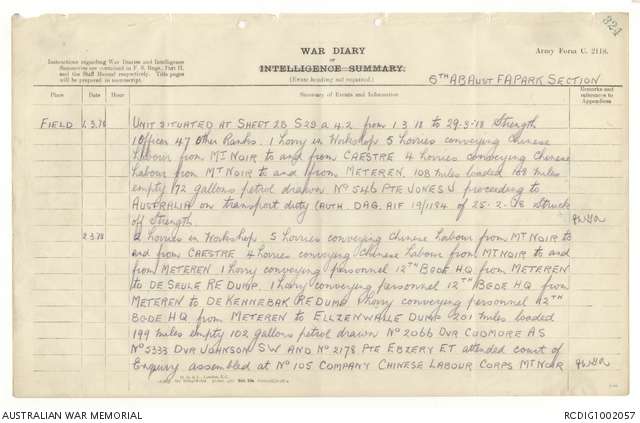 324
WAR DIARY
or
INTELLIGENCE SUMMARY.
(Erase heading not required.)
Army Form C. 2118.
Instructions regarding War Diaries and Intelligence
Summaries are contained in F. S. Regs., Part II.
and the Staff Manual respectively. Title pages
will be prepared in manuscript.
6TH AB AUST FA PARK SECTION
Place Date Hour Summary of Events and Information Remarks and references to Appendices
FIELD 1.3.18 UNIT SITUATED AT SHEET 28 S29 a 4.2 from 1 3 18 to 29-3-18 Strength
1 Officer 47 Other Ranks. 1 lorry in Workshop 5 lorries conveying Chinese
labour from MT NOIR to and from CAESTRE 4 lorries conveying Chinese
labour from MT NOIR to and from METEREN. 108 miles loaded 108 miles
empty 72 gallons petrol drawn No 546 PTE JONES J proceeding to
AUSTRALIA on transport duty (AUTH. DAG. AIF 19/1184 of 25-2-18 Struck
off Strength
2.3.18 2 lorries in Workshop 5 lorries conveying Chinese Labour from MT NOIR to
and from CAESTRE 4 lorries conveying Chinese Labour from MT NOIR to and
from METEREN 1 lorry conveying personnel 12TH BGDE HQ from METEREN
to DE SEULE RE DUMP. 1 lorry conveying personnel 12TH BGDE HQ from
METEREN to DE KENNEBAK RE DUMP 1 lorry conveying personnel 12TH
BGDE HQ from METEREN to ELLZENWALLE DUMP 201 miles loaded
199 miles empty 102 gallons petrol drawn No 2066 DVR CUDMORE AS
No 5333 DVR JOHNSON SW AND No 2178 PTE EBZERY ET attended court of
Enquiry assembled at No 105 COMPANY CHINESE LABOUR CORPS MT NOIR
AUSTRALIAN WAR MEMORIAL
RCDIG1002057